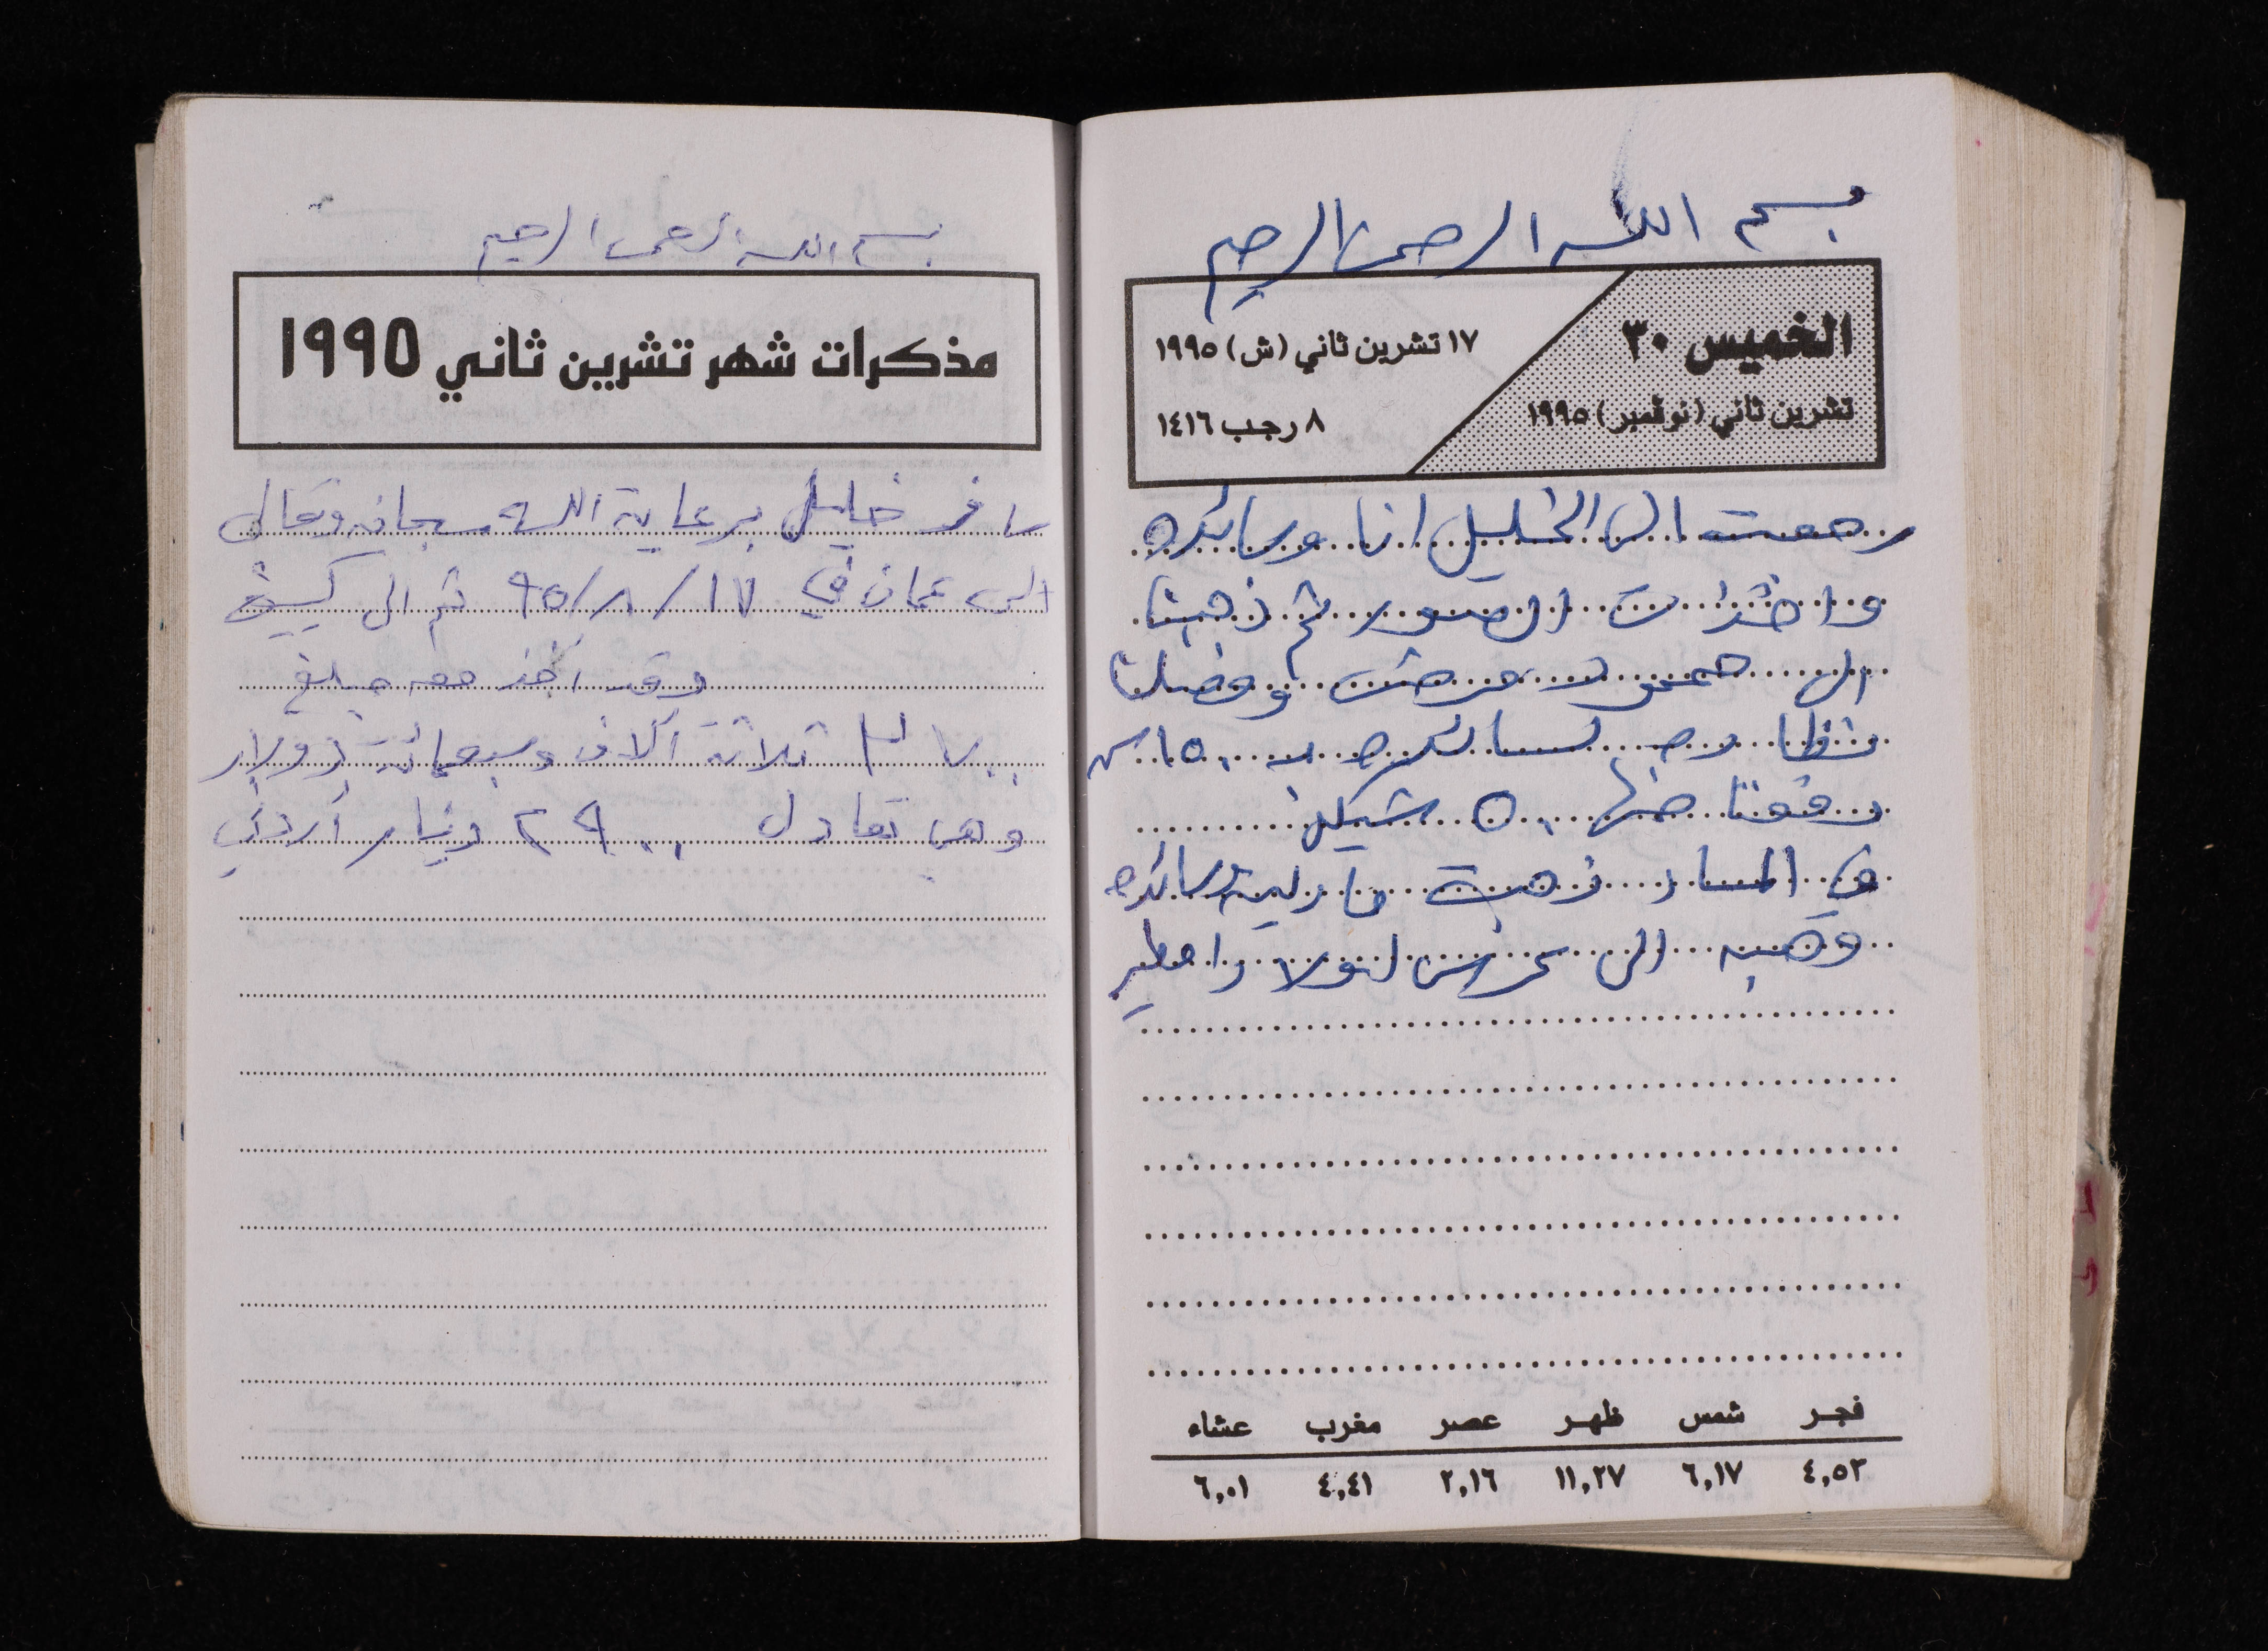 بسم الله الرحمن الرحيم
الخميس ٣٠
تشرين ثاني (نوفمبر) ١٩٩٥
١٧ تشرين ثاني (ش) ١٩٩٥
٨ رجب ١٤١٦
رجعت الى الخليل انا وسائده
واخذت الصور ثم ذهبنا
الى وفصلنا
لسائده بـ ١٥٠ ش
دفعنا منها ٥٠ شيكل
في المساء ذهبت ماريه سائده
وهبه الى عرس لولا
فجر شمس ظهر عصر مغرب عشاء
٤,٥٢ ٦,١٧ ١١,٢٧ ٢,١٦ ٤,٤١ ٦,٠١
بسم الله الرحمن الرحيم
مذكرات شهر تشرين ثاني ١٩٩٥
سافر خليل برعاية الله سبحانه وتعالى
الى عمان في ١٧/٨/٩٥ ثم الى كييف
وقد أخذ معه مبلغ
٣٧٠٠ ثلاثة آلاف وسبعمائة دولار
وهي تعادل ٢٩٠٠ دينار أردني